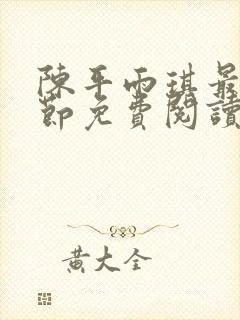 陳平雨琪最
節免費閱讀
黃大全